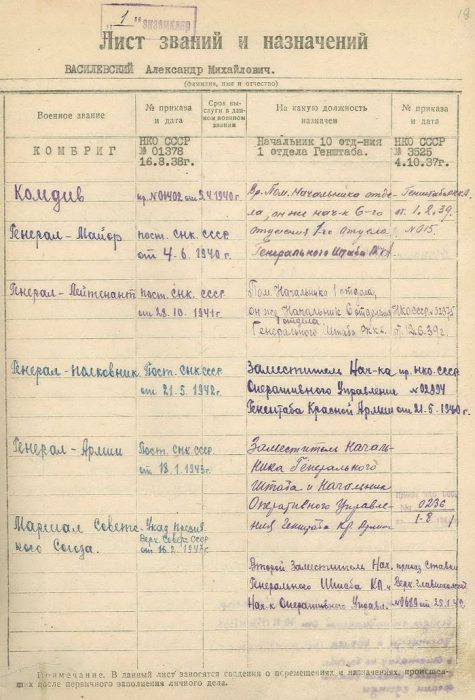 "1" экземпляр
19
Лист званий и назначений
ВАСИЛЕВСКИЙ Александр Михайлович.
(фамилия, имя и отчество)
Военное звание
№ приказа
и дата
Срок выслуги в данном военном звании
На какую должность
назначен
№ приказа
и дата
КОМБРИГ
НКО СССР
№ 01378
16.8.38г.
Начальник 10 отд-ния
1 отдела Генштаба.
НКО СССР
№ 3525
4.10.37г.
Комдив
пр. №01402 от 5.4.1940г.
Вр. Пом. Начальника отде-
ла, он же нач-к 6-го
отделения 1-го отдела
Генерального Штаба РККА
Генштаба РККА
от 1.2.39.
№015.
Генерал-Майор
пост. СНК СССР
от 4.6.1940г.
Генерал-Лейтенант
пост. СНК СССР
от 28.10.1941г.
Пом. Начальника 1 отдела,
он же Начальник 6 отделения
отдела
Генерального Штаба РККА.
НКО СССР
от 12.6.39г.
Генерал-Полковник
Пост. СНК СССР
от 21.5.1942г.
Заместителем Нач-ка
Оперативного Управления
Генштаба Красной Армии
пр. НКО СССР
№02094
от 21.5.1940г.
Генерал-Армии
Пост. СНК СССР
от 18.1.1943г.
Заместителем Началь-
ника Генерального
Штаба и Начальник
Оперативного Управле-
ния Генштаба Кр. Армии
№ 0236
1-8
Маршал Советс-
кого Союза.
Указ Презид.
Верх. Совета СССР
от 16.2.1943г.
Второй Заместитель Нач.
Генерального Штаба КА и
Нач-к Оперативного Управл.
приказ Ставки
Примечание. В данный лист заносятся сведения о перемещениях и назначениях, происшед-
ших после первичного заполнения личного дела.